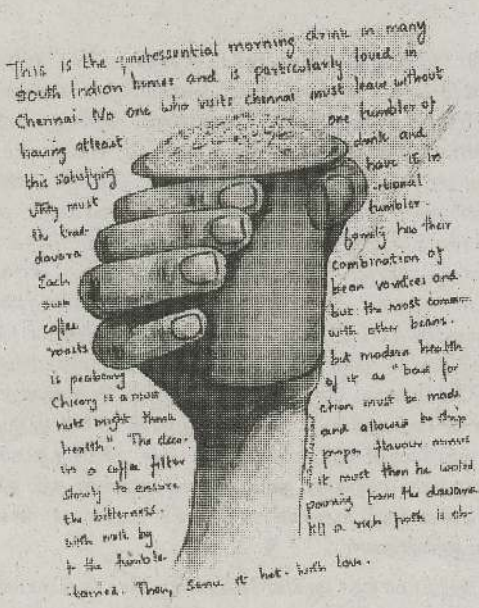 This is the quintessential morning drink in many
South Indian homes and is particularly loved in
Chennai. No one who visits Chennai must leave without
having atleast one tumbler of
this satisfying drink and
they must have it in
the trad- -itional
davara tumbler.
Each family has their
own combination of
coffee bean varieties and
roasts but the most common
is peaberry with other beans.
Chicory is a must but modern health
nuts might think of it as "bad for
health" The deco- ction must be made
in a coffee filter and allowed to drip
slowly to ensure proper flavour minus
the bitterness. it must then be
with milk by pouring from the davara
to the tumbler till a rich froth is ob-
-tained. Then, serve it hot- with love.